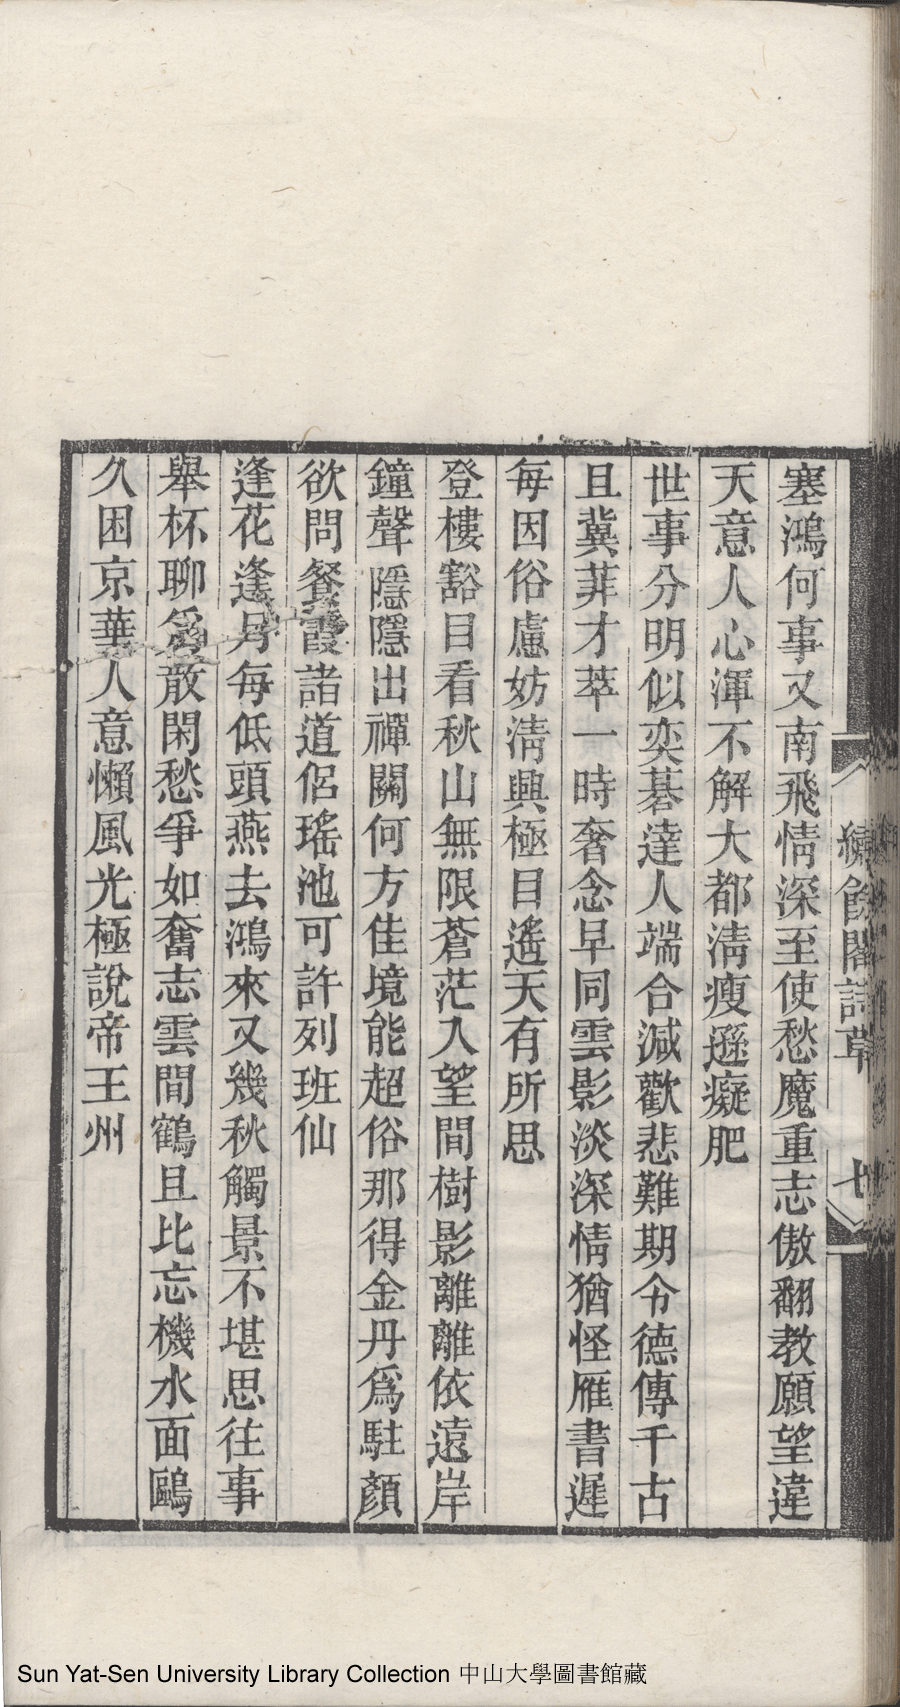 塞鴻何事又南飛情深至使愁魔重志傲翻教願望違
天意人心渾不解大都淸瘦遜癡肥
世事分明似奕碁達人端合減歡悲難期令德傳千古
且冀菲才萃一時奢念早同雲影淡深情猶怪雁書遲
每因俗慮妨淸興極目遙天有所思
登樓豁目看秋山無限蒼茫入望間樹影離離依遠岸
鐘聲隱隱出禪關何方佳境能超俗那得金丹爲駐顏
欲問餐霞諸道侶瑤池可許列班仙
逢花逢月每低頭燕去鴻來又幾秋觸景不堪思往事
舉杯聊爲散閑愁爭如奮志雲間鶴且比忘機水面鷗
久困京華人意懶風光極說帝王州
繡餘閣詩草
七
Sun Yat-Sen University Library Collection 中山大學圖書館藏